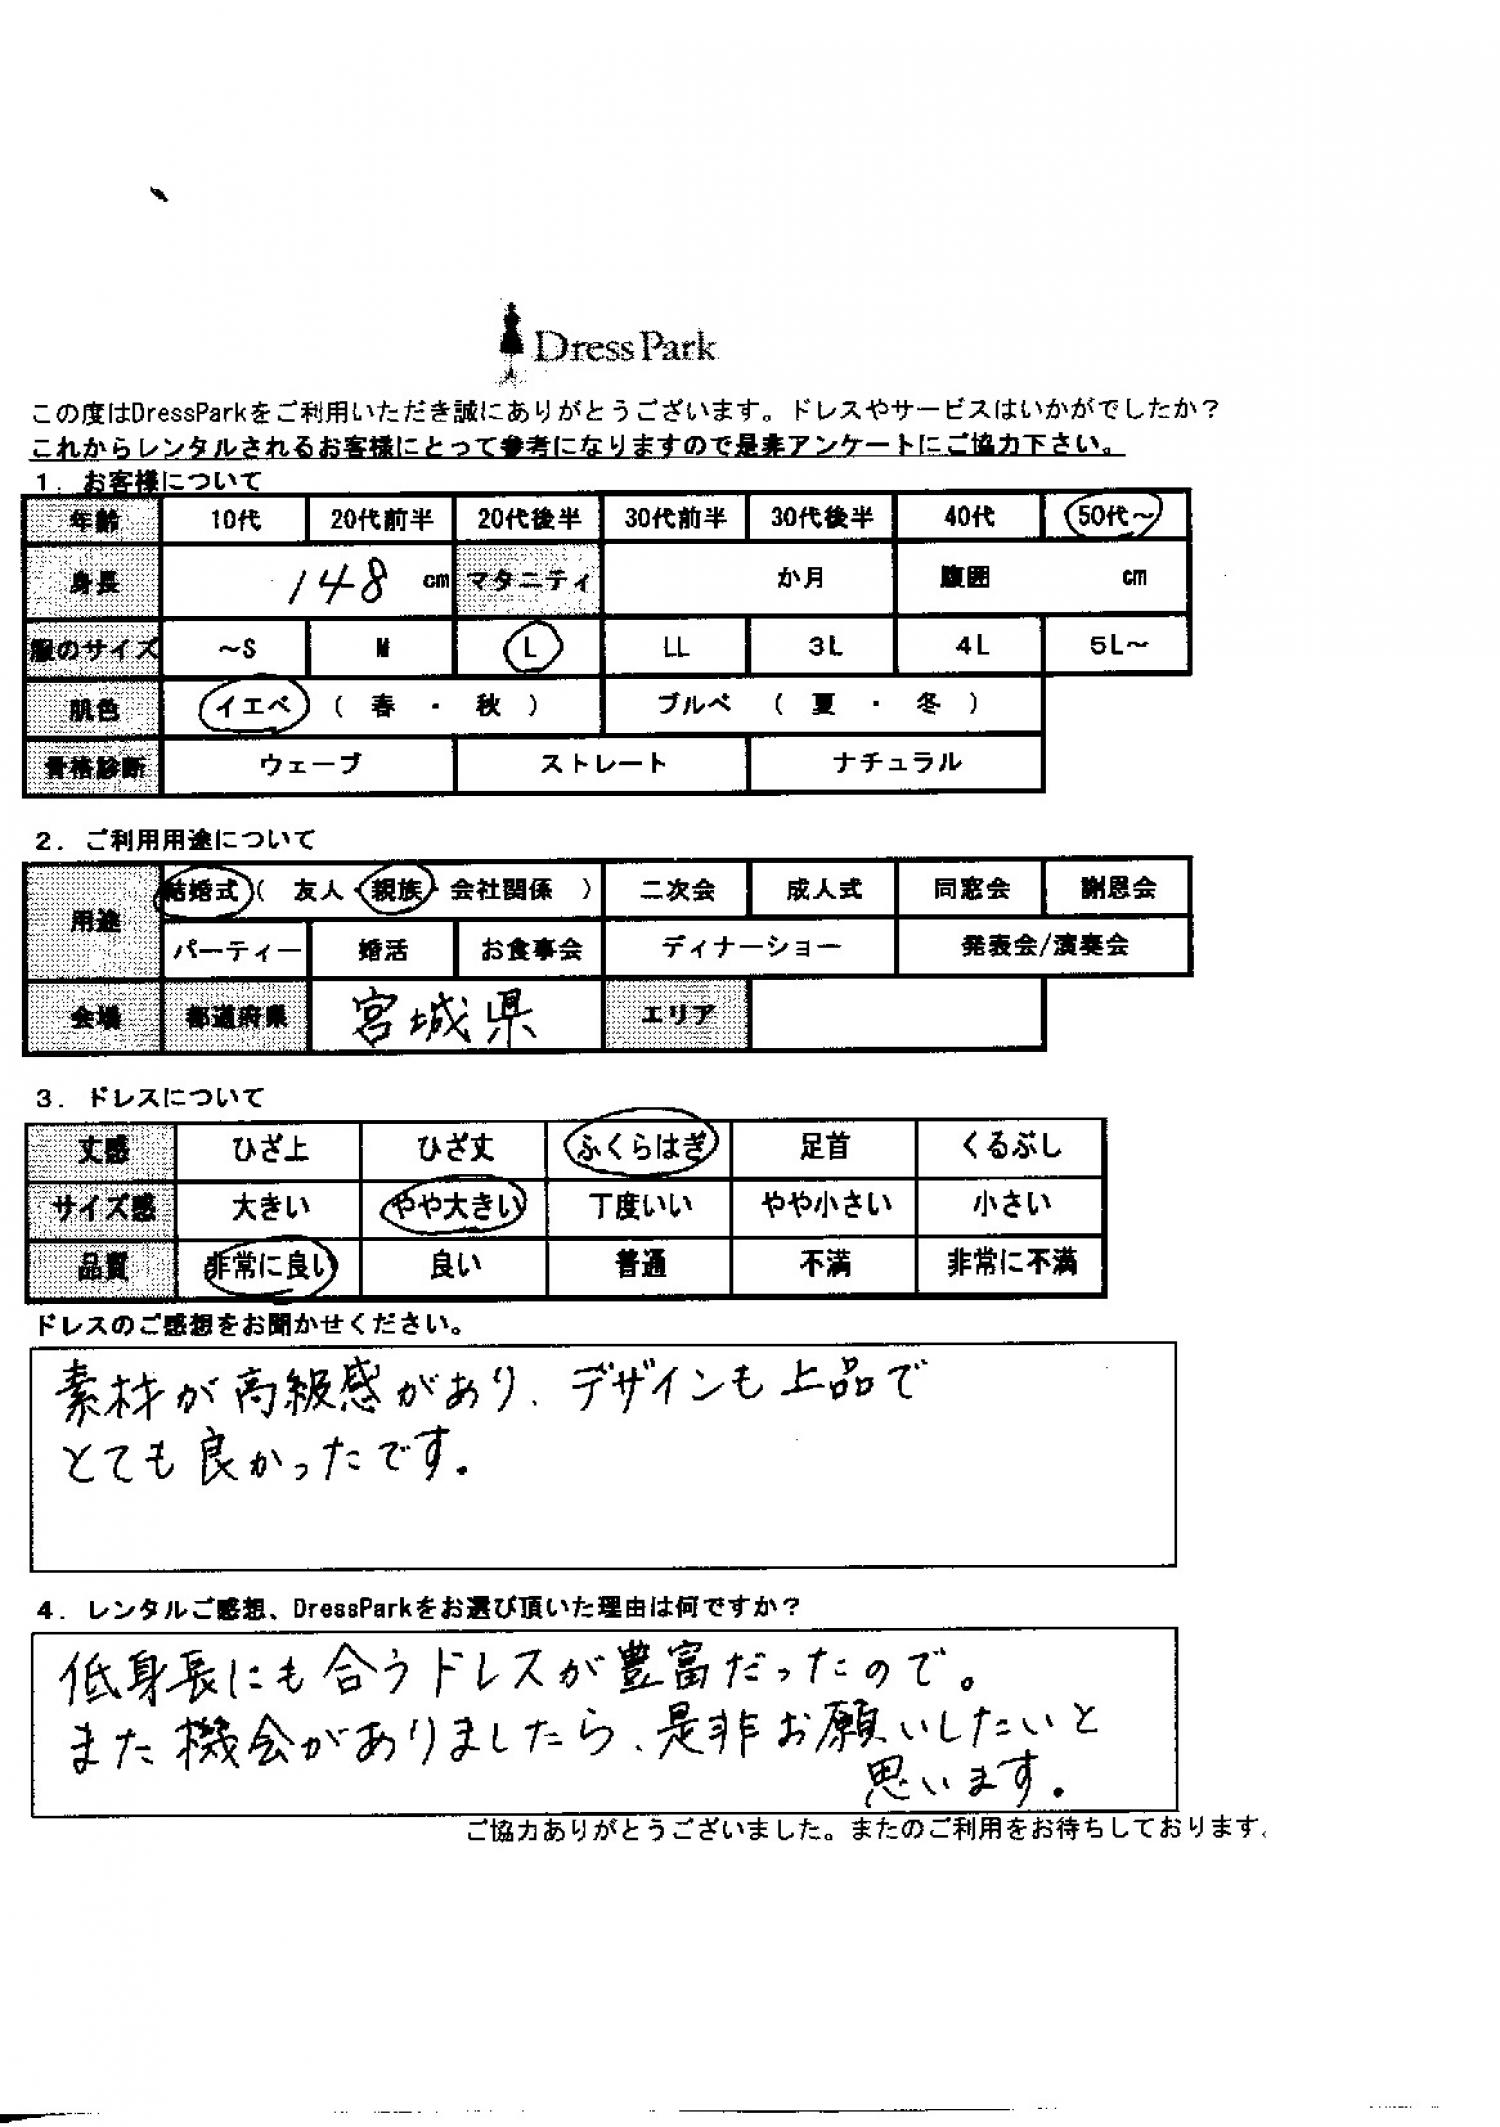 DressPark
この度はDressParkをご利用いただき誠にありがとうございます。ドレスやサービスはいかがでしたか？
これからレンタルされるお客様にとって参考になりますので是非アンケートにご協力下さい。
１．お客様について
年齢 10代 20代前半 20代後半 30代前半 30代後半 40代 50代～
身長 148 cm マタニティ か月 腹囲 cm
服のサイズ ～S M L LL 3L 4L 5L～
肌色 イエベ （ 春 ・ 秋 ） ブルベ （ 夏 ・ 冬 ）
骨格診断 ウェーブ ストレート ナチュラル
２．ご利用用途について
用途 結婚式（ 友人・親族・会社関係 ） 二次会 成人式 同窓会 謝恩会
パーティー 婚活 お食事会 ディナーショー 発表会/演奏会
会場 都道府県 宮城県 エリア
３．ドレスについて
丈感 ひざ上 ひざ丈 ふくらはぎ 足首 くるぶし
サイズ感 大きい やや大きい 丁度いい やや小さい 小さい
品質 非常に良い 良い 普通 不満 非常に不満
ドレスのご感想をお聞かせください。
素材が高級感があり、デザインも上品で
とても良かったです。
４．レンタルご感想、DressParkをお選び頂いた理由は何ですか？
低身長にも合うドレスが豊富だったので。
また機会がありましたら、是非お願いしたいと
思います。
ご協力ありがとうございました。またのご利用をお待ちしております。